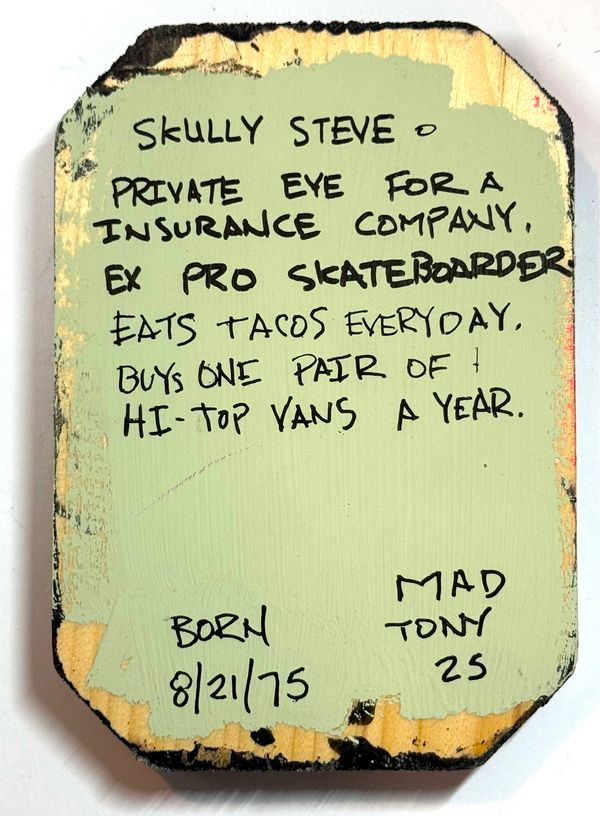 SKULLY STEVE o
PRIVATE EYE FOR A
INSURANCE COMPANY.
EX PRO SKATEBOARDER.
EATS TACOS EVERYDAY.
BUYS ONE PAIR OF
HI-TOP VANS A YEAR.
MAD
BORN TONY
8/21/75 25